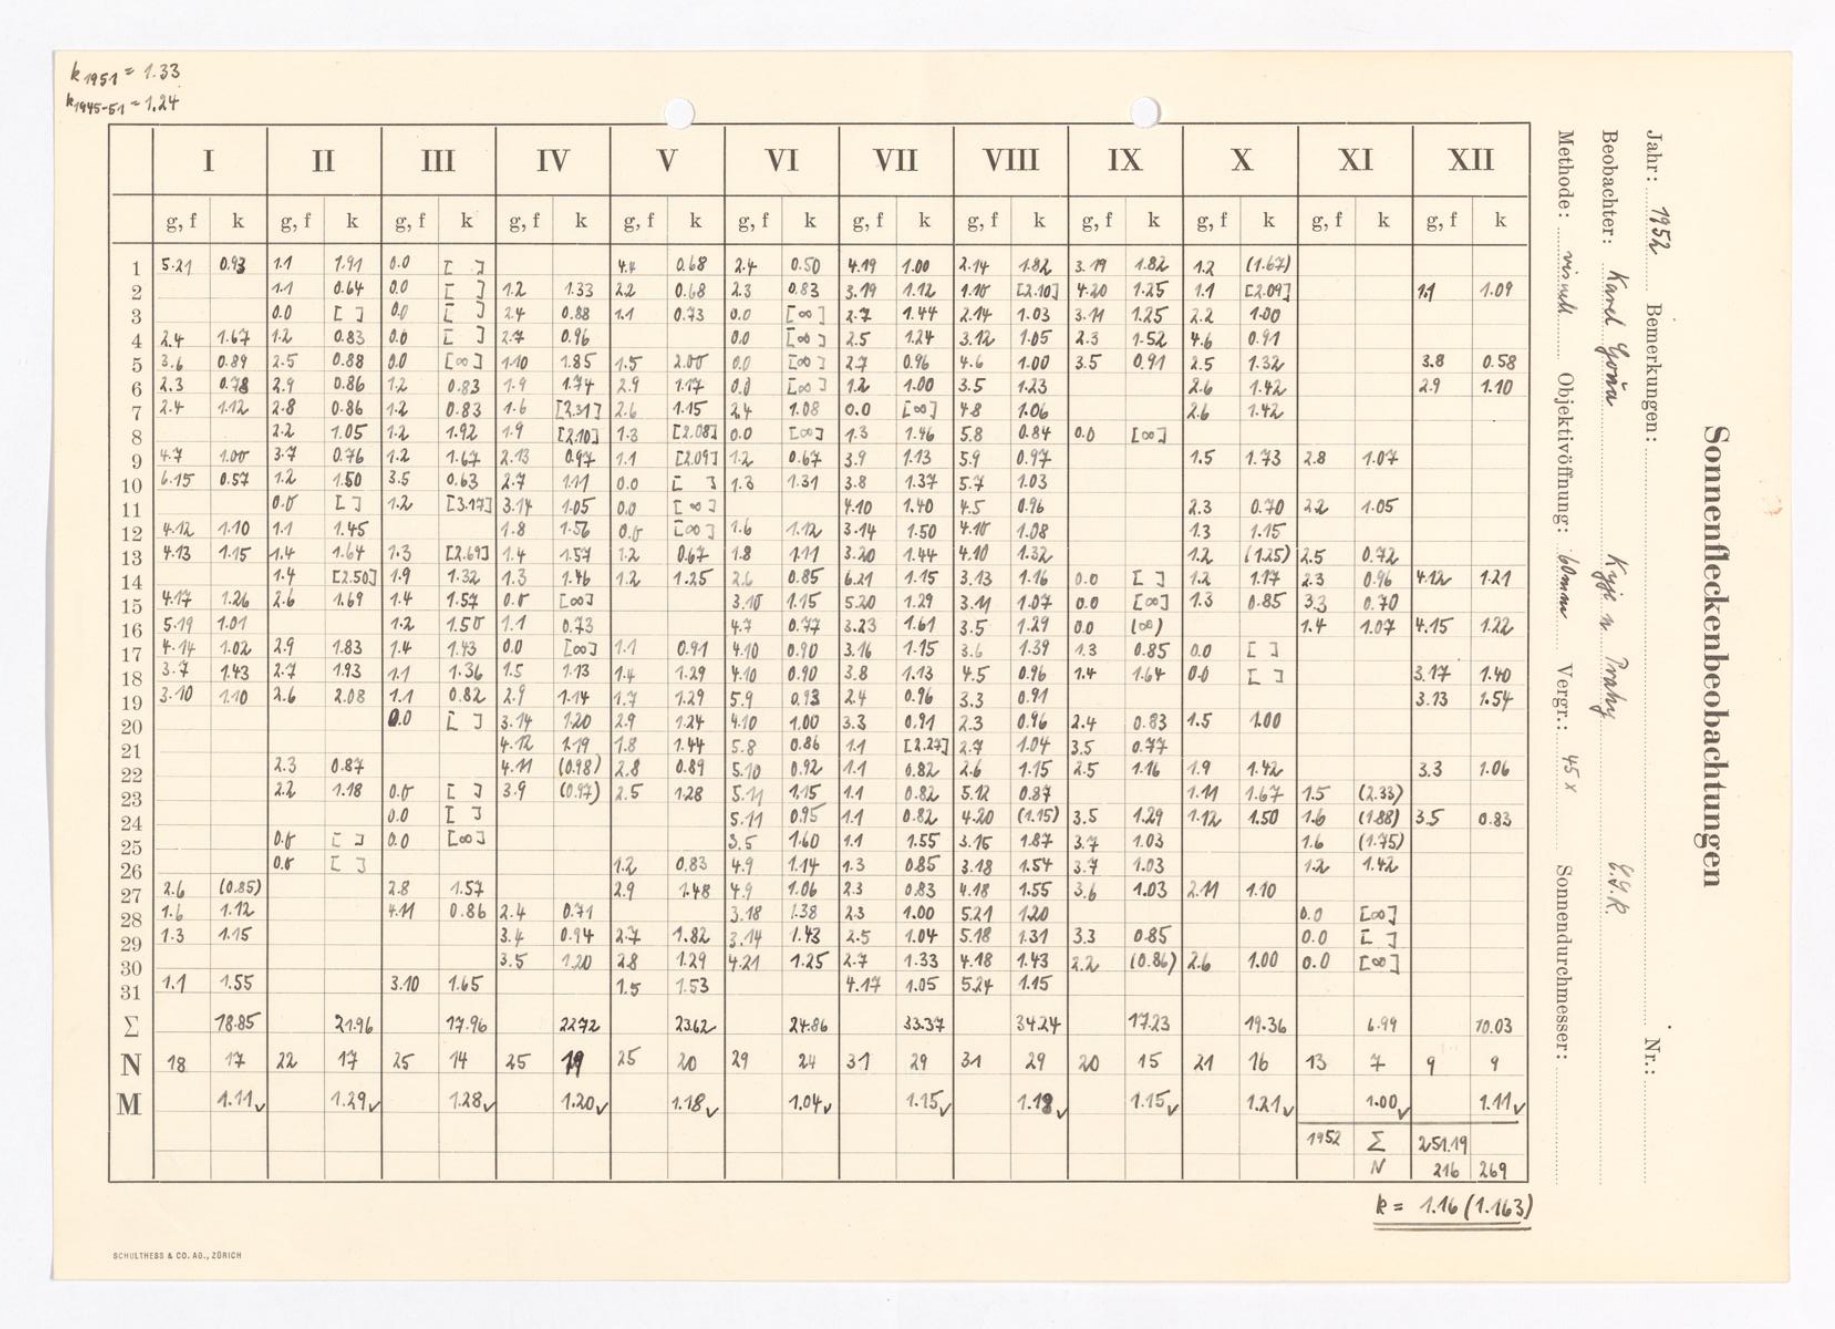 k1951 = 1.33
k1945-51 = 1.24
Sonnenfleckenbeobachtungen
Jahr: 1952 Bemerkungen: Nr.:
Beobachter: Karel Goňa Kyje u Prahy Č.S.R.
Methode: visuell Objektivöffnung: 60mm Vergr.: 45x Sonnendurchmesser:
I II III IV V VI VII VIII IX X XI XII
g, f k g, f k g, f k g, f k g, f k g, f k g, f k g, f k g, f k g, f k g, f k g, f k
1 5.21 0.93 1.1 1.91 0.0 [ ] 4.4 0.68 2.4 0.50 4.19 1.00 2.14 1.82 3.19 1.82 1.2 (1.67)
2 1.1 0.64 0.0 [ ] 1.2 1.33 2.2 0.68 2.3 0.83 3.19 1.12 1.10 [2.10] 4.20 1.25 1.1 [2.09] 1.1 1.09
3 0.0 [ ] 0.0 [ ] 2.4 0.88 1.1 0.73 0.0 [∞] 2.7 1.44 2.14 1.03 3.11 1.25 2.2 1.00
4 2.4 1.67 1.2 0.83 0.0 [ ] 2.7 0.96 0.0 [∞] 2.5 1.24 3.12 1.05 2.3 1.52 4.6 0.91
5 3.6 0.89 2.5 0.88 0.0 [∞] 1.10 1.85 1.5 2.00 0.0 [∞] 2.7 0.96 4.6 1.00 3.5 0.91 2.5 1.32 3.8 0.58
6 2.3 0.78 2.9 0.86 1.2 0.83 1.9 1.74 2.9 1.17 0.0 [∞] 1.2 1.00 3.5 1.23 2.6 1.42 2.9 1.10
7 2.4 1.12 2.8 0.86 1.2 0.83 1.6 [2.31] 2.6 1.15 2.4 1.08 0.0 [∞] 4.8 1.06 2.6 1.42
8 2.2 1.05 1.2 1.92 1.9 [2.10] 1.3 [2.08] 0.0 [∞] 1.3 1.46 5.8 0.84 0.0 [∞]
9 4.7 1.00 3.7 0.76 1.2 1.67 2.13 0.97 1.1 [2.09] 1.2 0.67 3.9 1.13 5.9 0.97 1.5 1.73 2.8 1.07
10 6.15 0.57 1.2 1.50 3.5 0.63 2.7 1.11 0.0 [ ] 1.3 1.31 3.8 1.37 5.7 1.03
11 0.0 [ ] 1.2 [3.17] 3.14 1.05 0.0 [∞] 4.10 1.40 4.5 0.96 2.3 0.70 2.2 1.05
12 4.12 1.10 1.1 1.45 1.8 1.56 0.0 [∞] 1.6 1.12 3.14 1.50 4.10 1.08 1.3 1.15
13 4.13 1.15 1.4 1.64 1.3 [2.69] 1.4 1.57 1.2 0.67 1.8 1.11 3.20 1.44 4.10 1.32 1.2 (1.25) 2.5 0.72
14 1.4 [2.50] 1.9 1.32 1.3 1.46 1.2 1.25 2.6 0.85 6.21 1.15 3.13 1.16 0.0 [ ] 1.2 1.17 2.3 0.96 4.12 1.21
15 4.17 1.26 2.6 1.69 1.4 1.57 0.0 [∞] 3.10 1.15 5.20 1.29 3.11 1.07 0.0 [∞] 1.3 0.85 3.3 0.70
16 5.19 1.01 1.2 1.50 1.1 0.73 4.7 0.77 3.23 1.61 3.5 1.29 0.0 (∞) 1.4 1.07 4.15 1.22
17 4.14 1.02 2.9 1.83 1.4 1.43 0.0 [∞] 1.1 0.91 4.10 0.90 3.16 1.15 3.6 1.39 1.3 0.85 0.0 [ ]
18 3.7 1.43 2.7 1.93 1.1 1.36 1.5 1.13 1.4 1.29 4.10 0.90 3.8 1.13 4.5 0.96 1.4 1.64 0.0 [ ] 3.17 1.40
19 3.10 1.10 2.6 2.08 1.1 0.82 2.9 1.14 1.7 1.29 5.9 0.93 2.4 0.96 3.3 0.91 3.13 1.54
20 0.0 [ ] 3.14 1.20 2.9 1.24 4.10 1.00 3.3 0.91 2.3 0.96 2.4 0.83 1.5 1.00
21 4.12 1.19 1.8 1.44 5.8 0.86 1.1 [2.27] 2.7 1.04 3.5 0.77
22 2.3 0.87 4.11 (0.98) 2.8 0.89 5.10 0.92 1.1 0.82 2.6 1.15 2.5 1.16 1.9 1.42 3.3 1.06
23 2.2 1.18 0.0 [ ] 3.9 (0.97) 2.5 1.28 5.11 1.15 1.1 0.82 5.12 0.87 1.11 1.67 1.5 (2.33)
24 0.0 [ ] 5.11 0.95 1.1 0.82 4.20 (1.15) 3.5 1.29 1.12 1.50 1.6 (1.88) 3.5 0.83
25 0.0 [ ] 0.0 [∞] 3.5 1.60 1.1 1.55 3.15 1.87 3.7 1.03 1.6 (1.75)
26 0.0 [ ] 1.2 0.83 4.9 1.14 1.3 0.85 3.18 1.54 3.7 1.03 1.2 1.42
27 2.6 (0.85) 2.8 1.57 2.9 1.48 4.9 1.06 2.3 0.83 4.18 1.55 3.6 1.03 2.11 1.10
28 1.6 1.12 4.11 0.86 2.4 0.71 3.18 1.38 2.3 1.00 5.21 1.20 0.0 [∞]
29 1.3 1.15 3.4 0.94 2.7 1.82 3.14 1.43 2.5 1.04 5.18 1.31 3.3 0.85 0.0 [ ]
30 3.5 1.20 2.8 1.29 4.21 1.25 2.7 1.33 4.18 1.43 2.2 (0.86) 2.6 1.00 0.0 [∞]
31 1.1 1.55 3.10 1.65 1.5 1.53 4.17 1.05 5.24 1.15
Σ 18.85 21.96 17.96 22.72 23.62 24.86 33.37 34.24 17.23 19.36 6.99 10.03
N 18 17 22 17 25 14 25 19 25 20 29 24 31 29 31 29 20 15 21 16 13 7 9 9
M 1.11✓ 1.29✓ 1.28✓ 1.20✓ 1.18✓ 1.04✓ 1.15✓ 1.18✓ 1.15✓ 1.21✓ 1.00✓ 1.11✓
1952 Σ 251.19
N 216 269
k = 1.16 (1.163)
SCHULTHESS & CO. AG., ZÜRICH